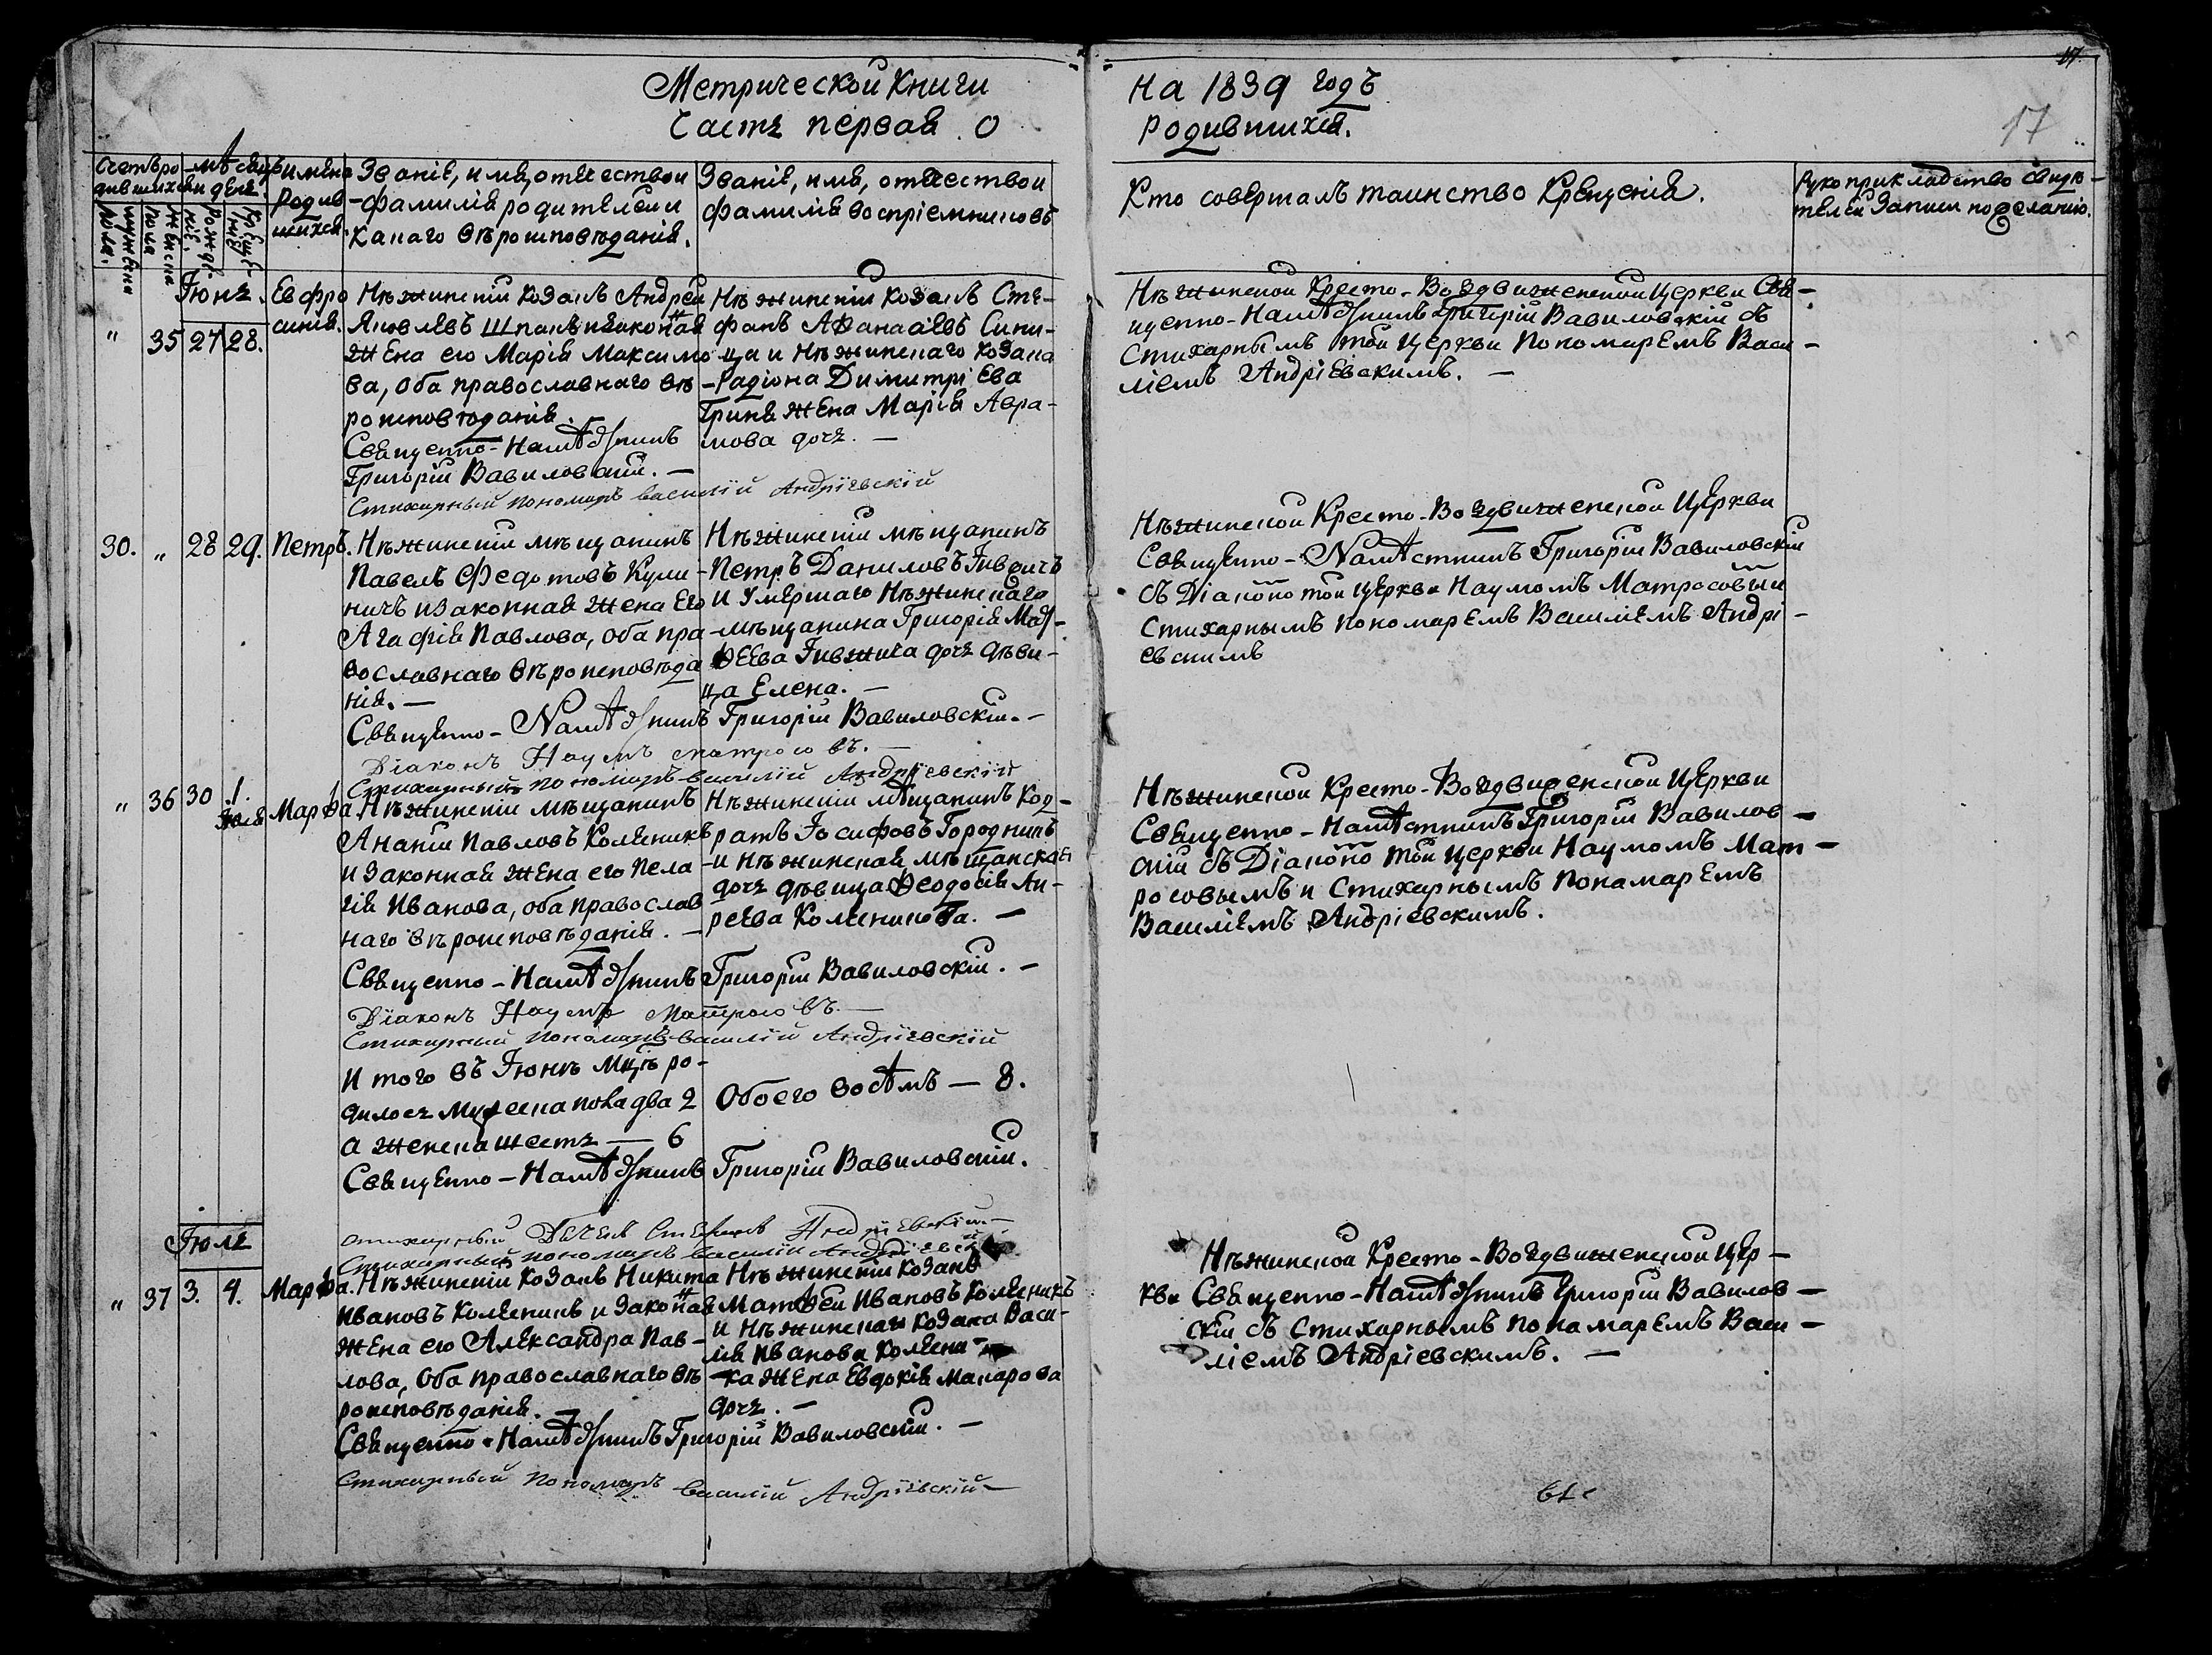 17.
17
Метрической Книги
Часть первая о
На 1839 годъ
родившихся.
Счетъ родившихся
мужеска пола.
женска пола
Мѣсяцъ и день
рожденія.
крещенія
Имена родившихся.
Званіе, имя, отчество и
фамилія родителей и
какаго вѣроисповѣданія.
Званіе, имя, отчество и
фамилія воспріемниковъ
Кто совершалъ таинство Крещенія.
Рукоприкладство свидѣ-
телей записи по желанію.
Іюнь.
„ 35 27 28.
Евфро
синія.
Нѣжинскій козакъ Андрей
Яковлевъ Шпакъ и законая
жена его Марія Максимо
ва, оба православнаго вѣ
роисповѣданія.
Священно-Намѣстникъ
Григорій Вавиловскій. —
Стихарный пономарь Василій Андріевскій
Нѣжинскій козакъ Сте-
фанъ Аѳанасіевъ Сини-
ца и Нѣжинскаго козака
Радіона Димитріева
Гриня жена Марія Авра-
мова дочь. —
Нѣжинской Кресто-Воздвиженской Церкви Свя-
щенно-Намѣстникъ Григорій Вавиловскій съ
Стихарнымъ той Церкви Пономаремъ Васи-
ліемъ Андріевскимъ. —
30. „ 28 29. Петръ.
Нѣжинскій мѣщанинъ
Павелъ Федотовъ Кули-
ничъ и законная жена его
Агафія Павлова, оба пра-
вославнаго вѣроисповѣда
нія. —
Священно-Намѣстникъ Григорій Вавиловскій. —
Діаконъ Наумъ Матросовъ. —
Стихарный пономарь Василій Андріевскій
Нѣжинскій мѣщанинъ
Петръ Даниловъ
и умершаго Нѣжинскаго
мѣщанина Григорія Мат-
ѳеева дочь дѣви-
ца Елена. —
Нѣжинской Кресто-Воздвиженской Церкви
Священно-Намѣстникъ Григорій Вавиловскій
съ Діакономъ той церкви Наумомъ Матросовым и
Стихарнымъ пономаремъ Василіемъ Андрі-
евскимъ
„ 36 30 1. Іюля Марѳа.
Нѣжинскій мѣщанинъ
Ананій Павловъ Коляникъ
и законная жена его Пела-
гія Иванова, оба православ
наго вѣроисповѣданія. —
Священно-Намѣстникъ Григорій Вавиловскій. —
Діаконъ Наумъ Матросовъ. —
Стихарный пономарь Василій Андріевскій
Нѣжинскій мѣщанинъ Код-
ратъ Іосифовъ Городникъ
и Нѣжинская мѣщанская
дочь дѣвица Ѳеодосія Ан-
реева Коляникова. —
Нѣжинской Кресто-Воздвиженской Церкви
Священно-Намѣстникъ Григорій Вавилов-
скій съ Діакономъ той церкви Наумомъ Мат-
росовымъ и Стихарнымъ Понамаремъ
Василіемъ Андріевскимъ.
И того въ Іюнѣ мцѣ ро-
дилось мужеска пола два 2
а женска шесть — 6
Обоего восѣмъ — 8.
Священно-Намѣстникъ Григорій Вавиловскій.
Стихарный Дьячекъ Стефанъ Андріевскій. —
Стихарный пономарь Василій Андріевскій
Іюль
„ 37 3. 4. Марѳа.
Нѣжинскій козакъ Никита
Ивановъ Коляникъ и законая
жена его Александра Пав-
лова, оба православнаго вѣ-
роисповѣданія. —
Священно-Намѣстникъ Григорій Вавиловскій. —
Стихарный Пономарь Василій Андріевскій —
Нѣжинскій козакъ
Матѳей Ивановъ Коляникъ
и Нѣжинскаго козака Васи-
лія Иванова Коляни-
ка жена Евдокія Макарова
дочь. —
Нѣжинской Кресто-Воздвиженской Цер-
кви Священно-Намѣстникъ Григорій Вавилов-
скій съ Стихарнымъ Понамаремъ Васи-
ліемъ Андріевскимъ. —